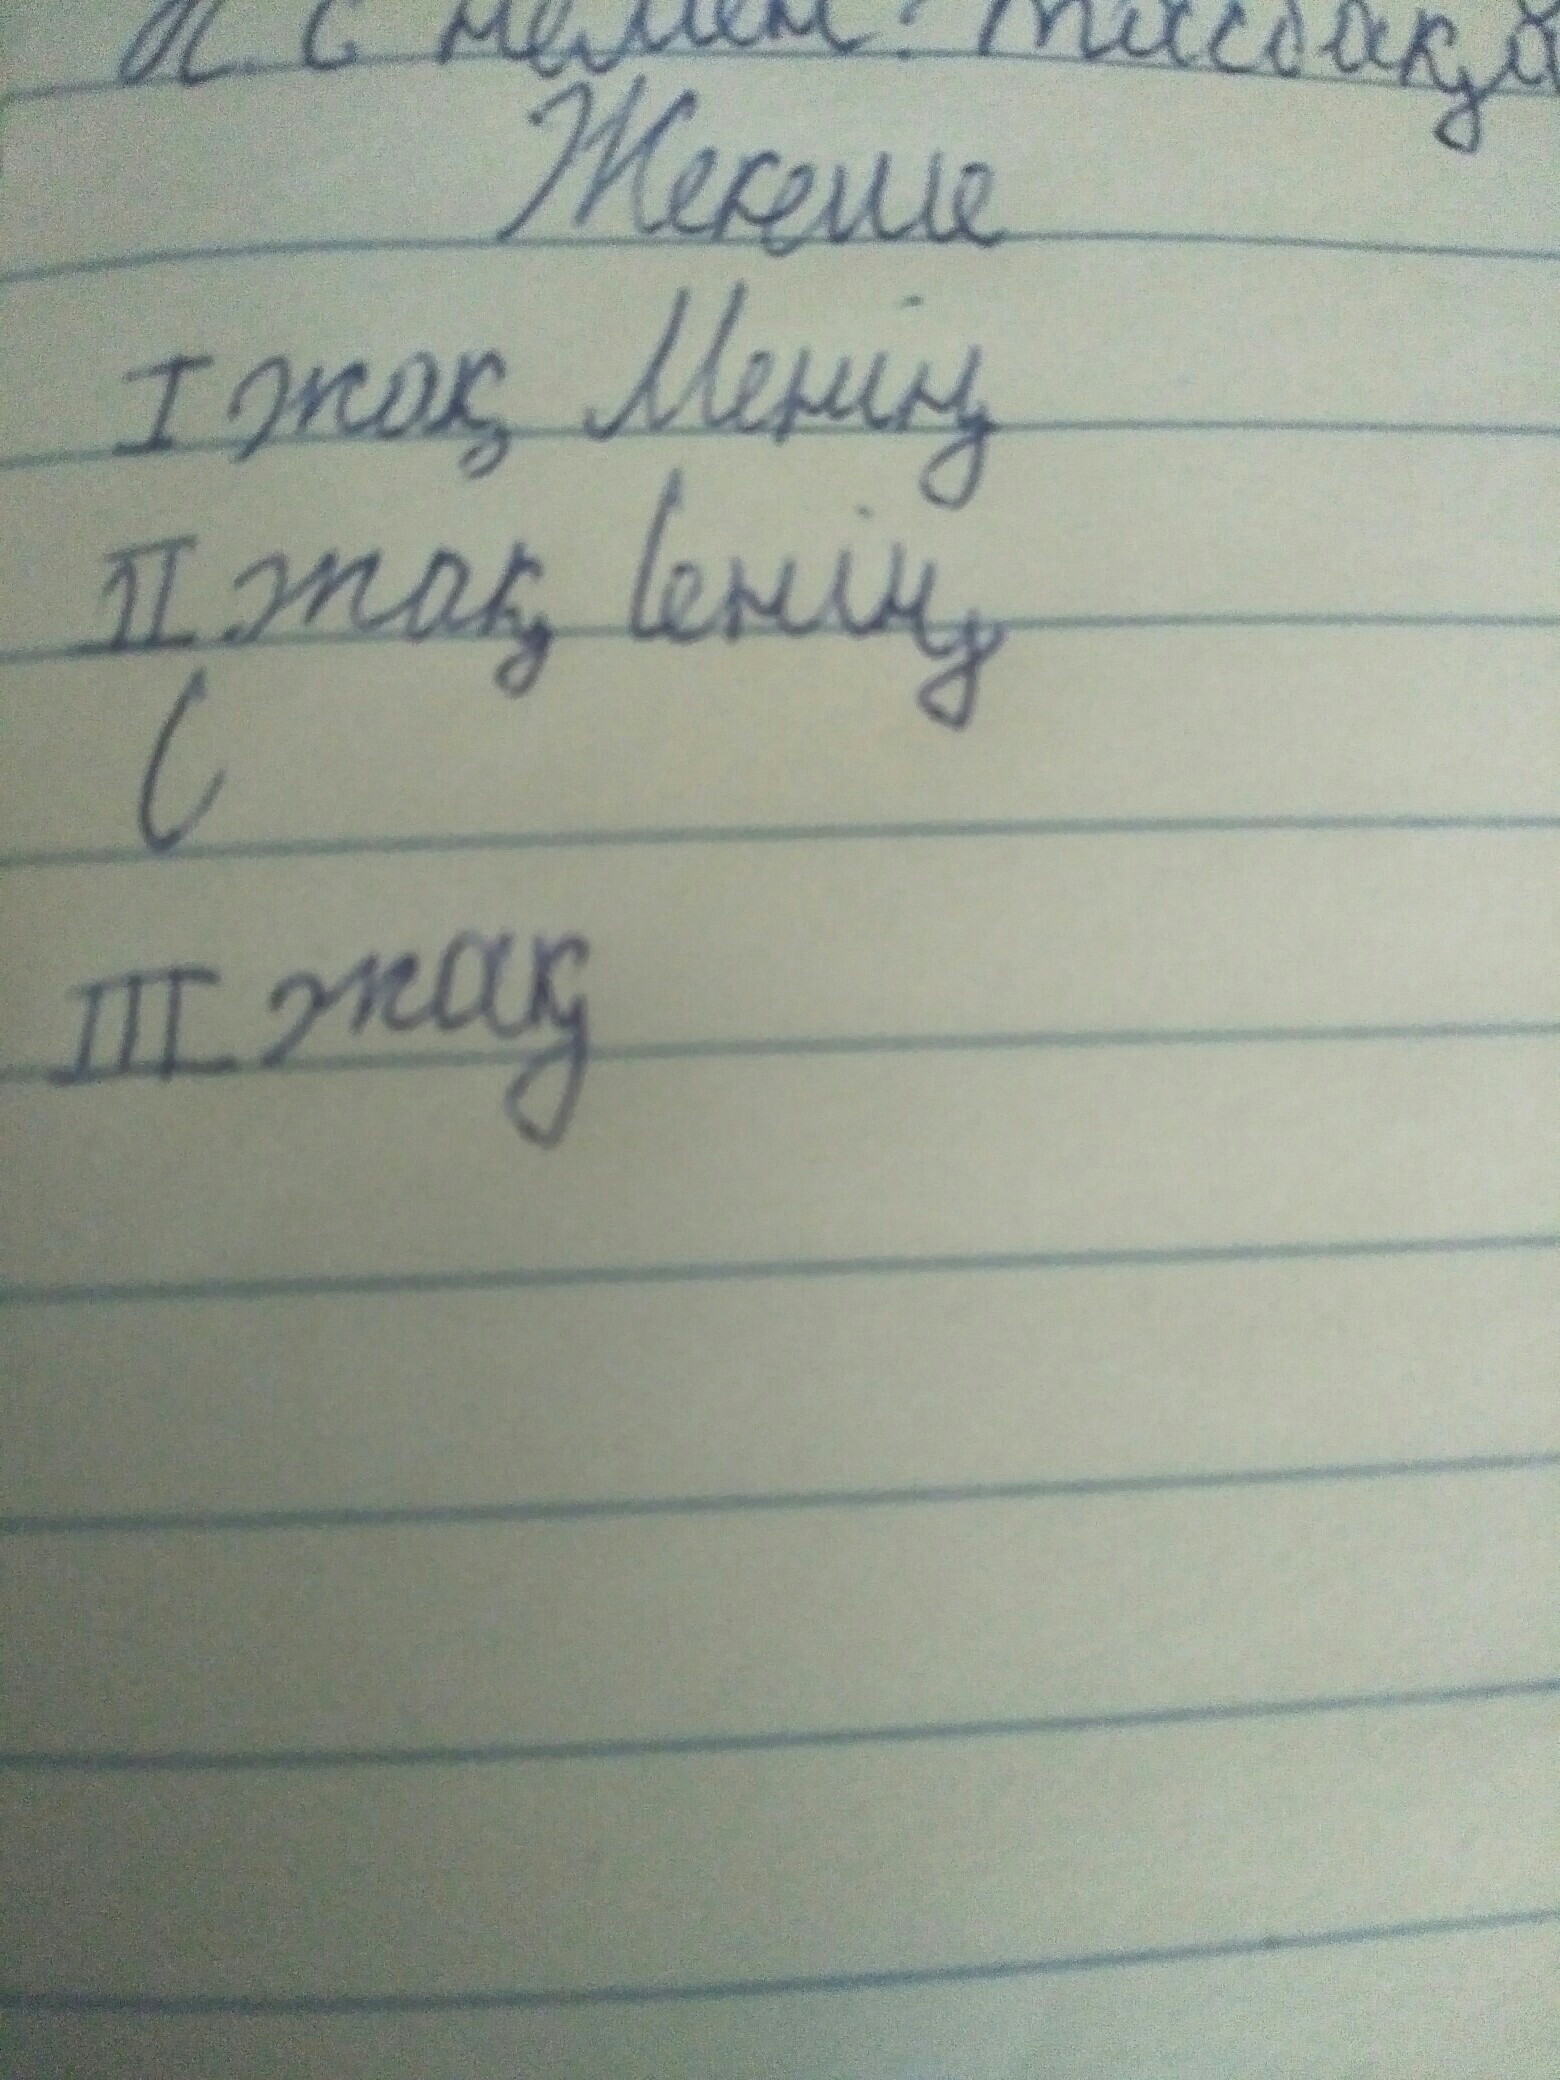 с немен? тасбақа
Жекеше
I жақ Менің
II жақ Сенің
С
III жақ